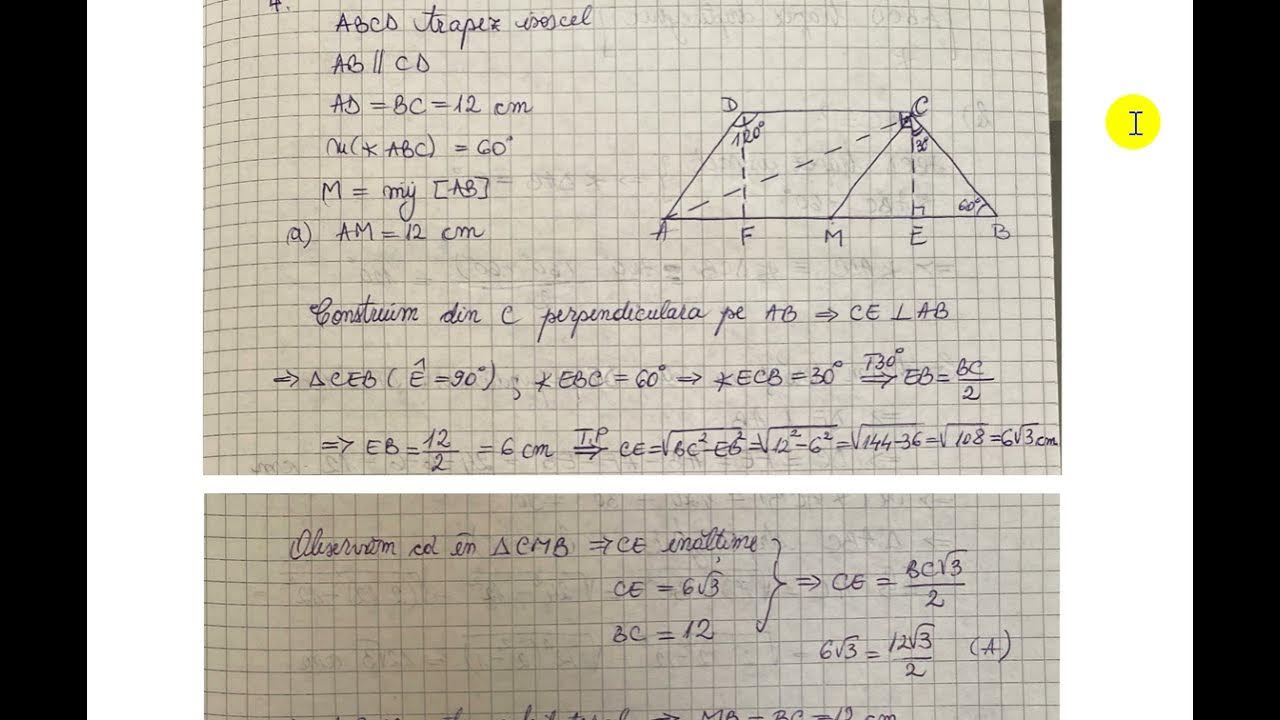 4.
ABCD trapez isoscel
AB ∥ CD
AD = BC = 12 cm
m(∢ ABC) = 60°
M = mij [AB]
a) AM = 12 cm
D C
120° 30°
60°
A F M E B
Construim din C perpendiculara pe AB ⇒ CE ⊥ AB
⇒ ΔCEB ( Ê = 90°) ; ∢EBC = 60° ⇒ ∢ECB = 30° T30° ⇒ EB = BC/2
⇒ EB = 12/2 = 6 cm T.P ⇒ CE = √BC²-EB² = √12²-6² = √144-36 = √108 = 6√3 cm
Observăm că în ΔCMB ⇒ CE înălțime
CE = 6√3 } ⇒ CE = BC√3/2
BC = 12
6√3 = 12√3/2 (A)
⇒ MB = BC = 12 cm